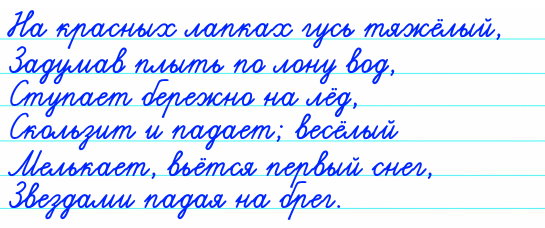 На красных лапках гусь тяжёлый,
Задумав плыть по лону вод,
Ступает бережно на лёд,
Скользит и падает; весёлый
Мелькает, вьётся первый снег,
Звездами падая на брег.